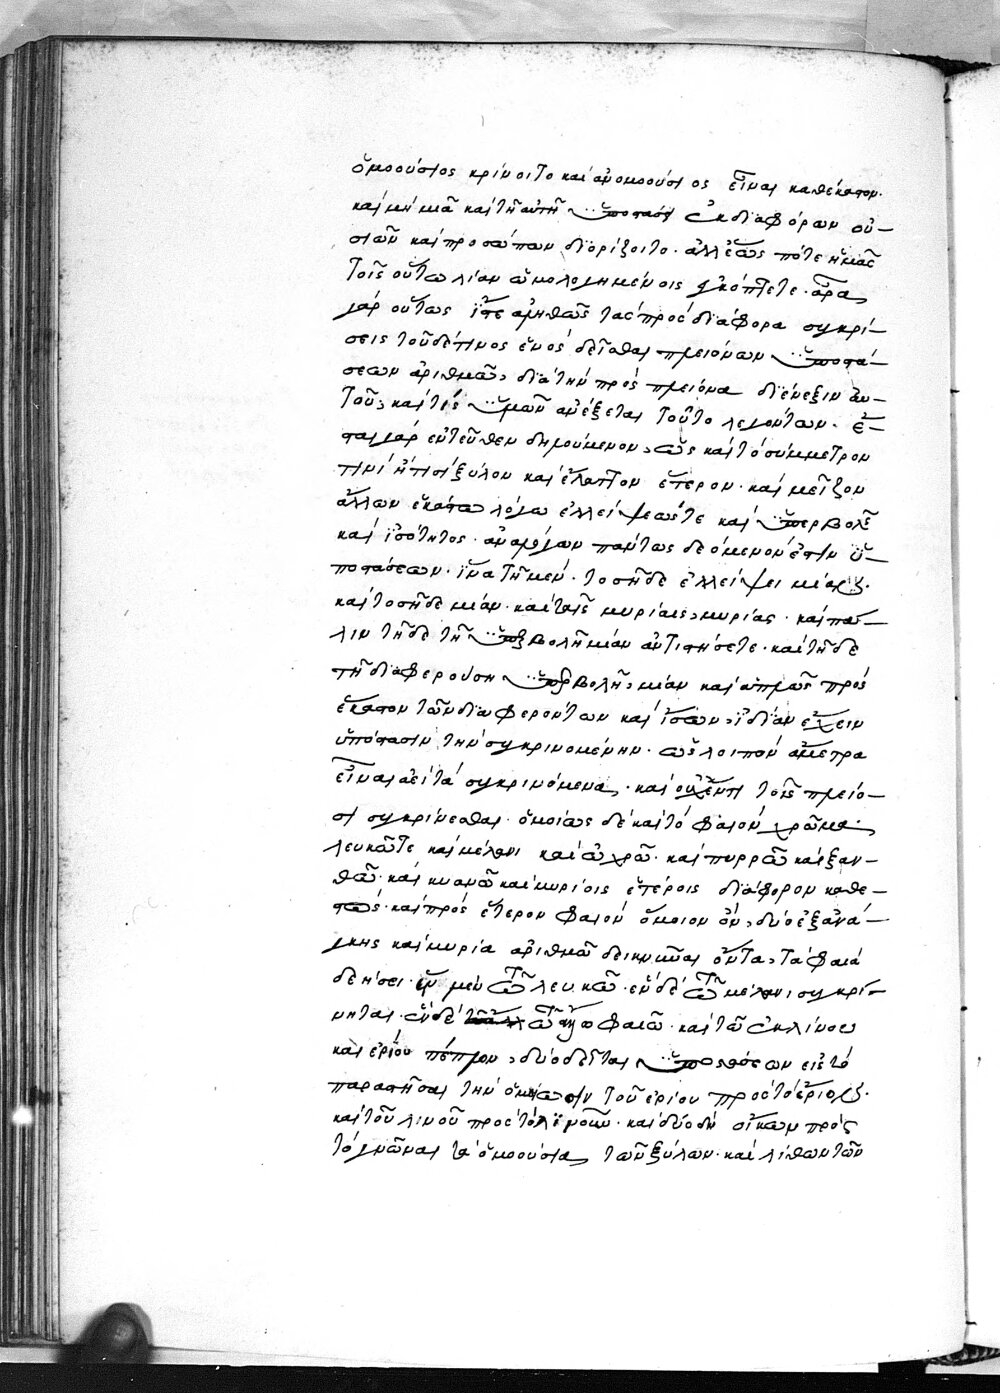 ὁμοούσιος κρίνοιτο καὶ ἀνομοούσιος εἶναι καθέκαστον·
καὶ μὴ μιᾷ καὶ τῇ αὐτῇ ὑποστάσει ἐκ διαφόρων οὐ-
σιῶν καὶ προσώπων διορίζοιτο· ἀλλ' ἕως πότε ἡμᾶς
τοῖς οὕτω λίαν ὡμολογημένοις ἐγκόπτετε· ἆρα
γὰρ οὕτως τὰς πρὸς διάφορα συγκρί-
σεις τοῦδέ τινος ἑνὸς δεῖσθαι πλειόνων ὑποστά-
σεων ἀριθμῷ, διὰ τὴν πρὸς πλείονα διένεξιν αὐ-
τοῦ, καὶ τίς ὑμῶν ἀνέξεται τοῦτο λεγόντων· ἔ-
σται γὰρ ἐντεῦθεν δημούμενον, ὡς καὶ τὸ σύμμετρον
τινὶ ἢ τισὶ ξύλον καὶ ἔλαττον ἕτερον· καὶ μεῖζον
ἄλλων ἑκάστῳ λόγῳ ἐλλείψεώς τε καὶ ὑπερβολῆς
καὶ ἰσότητος· ἀναλόγων πάντως δεόμενόν ἐστιν ὑ-
ποστάσεων· ἵνα τῇ μὲν· τοσῇδε ἐλλείψει μίαν·
καὶ τοσῇδε μίαν· καὶ ταῖς μυρίαις, μυρίας· καὶ πά-
λιν τῇδε τῇ ὑπερβολῇ μίαν ἀντιστήσετε· καὶ τῇδε
τῇ διαφερούσῃ ὑπερβολῇ, μίαν καὶ ἁπλῶς πρὸς
ἕκαστον τῶν διαφερόντων καὶ ἴσων, ἰδίαν ἔχειν
ὑπόστασιν τὴν συγκρινομένην· ὡς λοιπὸν ἄμετρα
εἶναι ἀεὶ τὰ συγκρινόμενα· καὶ οὐχ ἑνὶ τοῖς πλείο-
σι συγκρίνεσθαι· ὁμοίως δὲ καὶ τὸ φαιὸν χρῶμα·
λευκῷ τε καὶ μέλανι καὶ ὠχρῷ· καὶ πυρρῷ καὶ ξαν-
θῷ· καὶ κυανῷ καὶ μυρίοις ἑτέροις διάφορον καθε-
στὼς· καὶ πρὸς ἕτερον φαιὸν ὅμοιον ὂν, δύο ἐξ ἀνά-
γκης καὶ μυρία ἀριθμῷ δεικνῦναι ὄντα, τὰ φαιὰ
δεήσει· ἓν μὲν τῷ λευκῷ· ἓν δὲ τῷ μέλανι συγκρί-
νηται· ἓν δὲ τῷ φαιῷ· καὶ τῷ ἐκ λίνου
καὶ ἐρίου πέπλον, δύο δεῖται ὑποστάσεων εἰς τὸ
παραστῆσαι τὴν ὁμοίωσιν τοῦ ἐρίου πρὸς τὸ ἔριον·
καὶ τοῦ λινοῦ πρὸς τὸ λινοῦν· καὶ δύο δὴ οἴκων πρὸς
τὸ γνῶναι τὰ ὁμοούσια τῶν ξύλων· καὶ λίθων τῶν